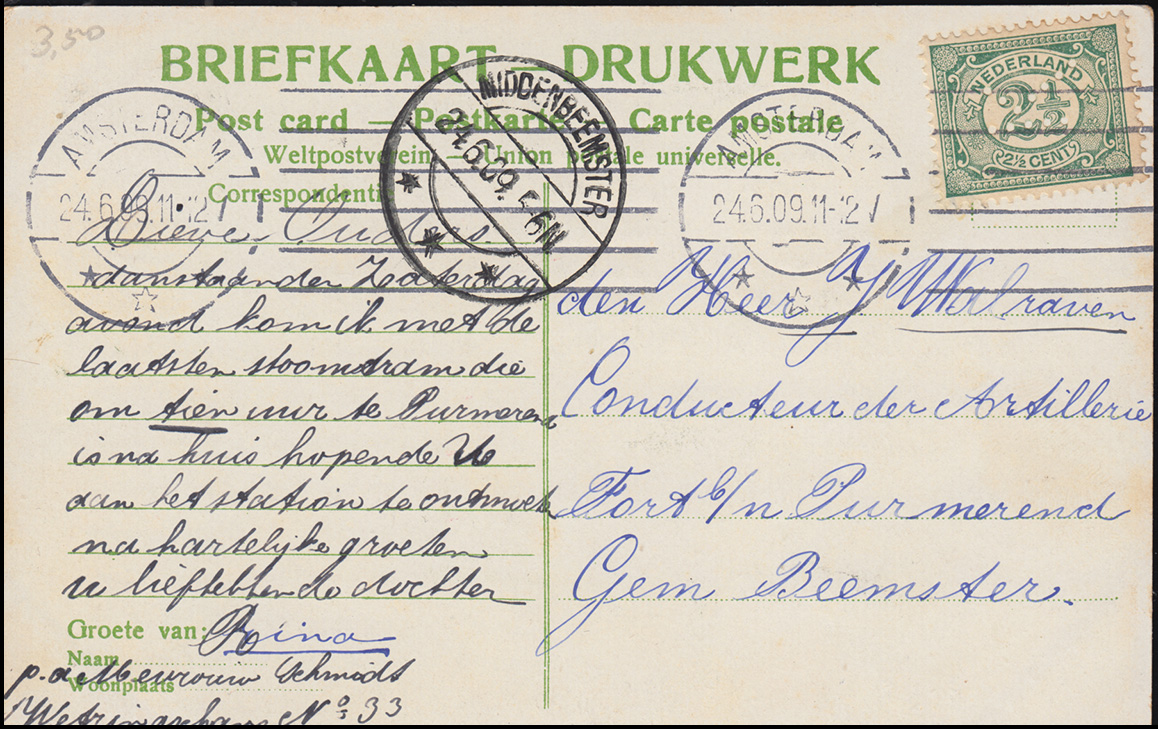 3,50
BRIEFKAART — DRUKWERK
Post card — Postkarte — Carte postale
Weltpostverein — Union postale universelle.
Correspondentie
NEDERLAND
2½
2½ CENT
AMSTERDAM
24.6.09.11-12 V
MIDDENBEEMSTER
24.6.09. 5-6N
AMSTERDAM
24.6.09.11-12 V
Lieve Ouders
aanstaanden Zaterdag
avond kom ik met de
laatsten stoomtram die
om tien uur te Purmerend
is na huis hopende U
aan het station te ontmoeten
na hartelijke groeten
u liefhebbende dochter
Groete van: Rina
Naam
p.a Mevrouw Schmidt
Woonplaats
Wetringschans No 33
den Heer J Walraven
Conducteur der Artillerie
Fort b/n Purmerend
Gem Beemster.